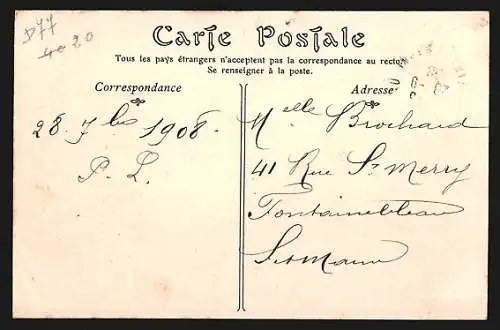 D77
40 20
Carte Postale
Tous les pays étrangers n'acceptent pas la correspondance au recto.
Se renseigner à la poste.
Correspondance
Adresse
28. 7bre 1908.
P. L.
Melle Brochard
41 Rue St Merry
Fontainebleau
Set Marne